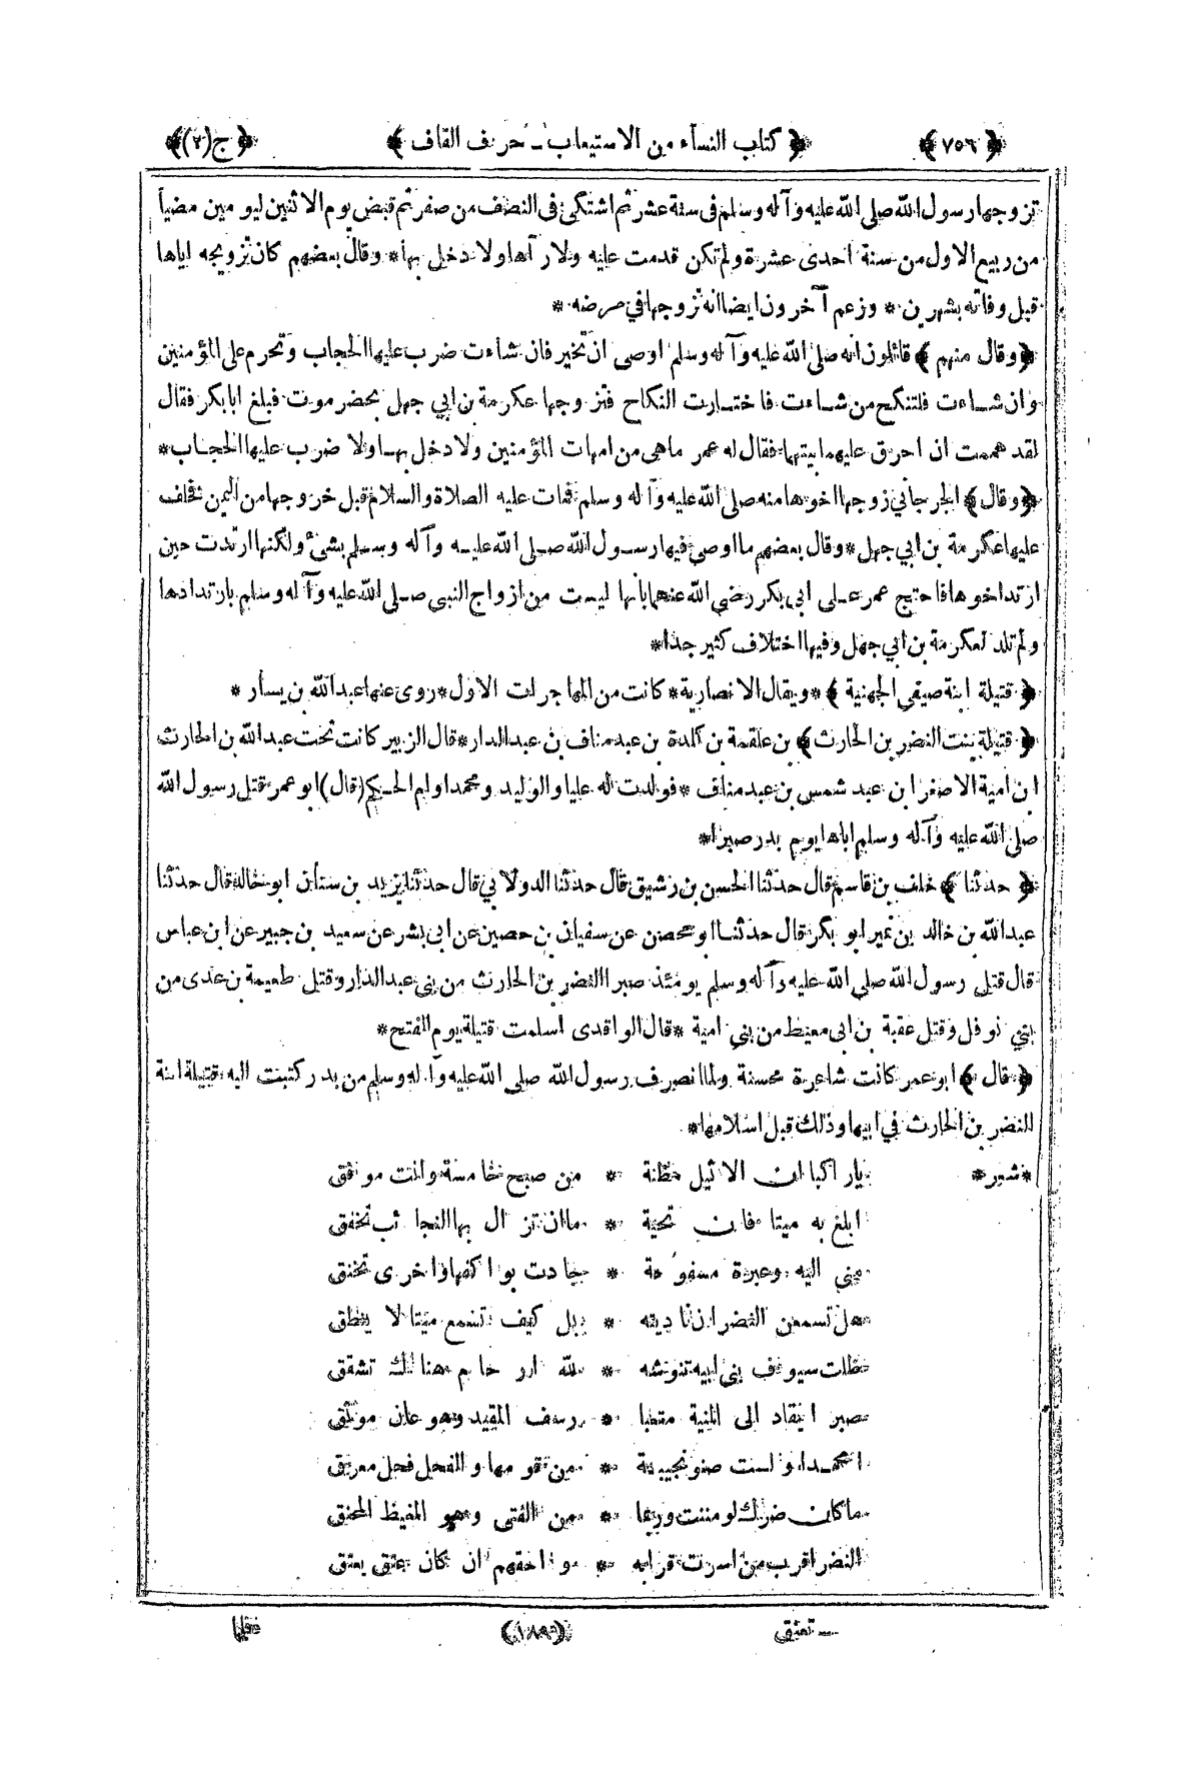 ﴿٧٥٦﴾ ﴿كتاب النسآء من الاستيعاب ـ حرف القاف﴾ ﴿ج(٢)﴾
تزوجها رسول الله صلى الله عليه وآله وسلم فى سنة عشر ثم اشتكى فى النصف من صفر ثم قبض يوم الاثنين ليومين مضيا
من ربيع الاول من سنة احدى عشرة ولم تكن قدمت عليه ولا رآها ولا دخل بها * وقال بعضهم كان تزويجه اياها
قبل وفاته بشهرين * وزعم آخرون ايضا انه تزوجها في مرضه *
﴿وقال منهم﴾ قائلون انه صلى الله عليه وآله وسلم اوصى ان تخير فان شاءت ضرب عليها الحجاب وتحرم على المؤمنين
وان شاءت فلتنكح من شاءت فاختارت النكاح فتزوجها عكرمة بن ابي جهل بحضر موت فبلغ ابا بكر فقال
لقد هممت ان احرق عليهما بيتهما فقال له عمر ما هى من امهات المؤمنين ولا دخل بها ولا ضرب عليها الحجاب *
﴿وقال﴾ الجرجاني زوجها اخوها منه صلى الله عليه وآله وسلم فمات عليه الصلاة والسلام قبل خروجها من اليمن فخلف
عليها عكرمة بن ابي جهل * وقال بعضهم ما اوصى فيها رسول الله صلى الله عليه وآله وسلم بشئ ولكنها ارتدت حين
ارتد اخوها فاحتج عمر على ابي بكر رضي الله عنهما بأنها ليست من ازواج النبي صلى الله عليه وآله وسلم بارتدادها
ولم تلد لعكرمة بن ابي جهل وفيها اختلاف كثير جدا *
﴿قتيلة ابنة صيفي الجهنية﴾ * ويقال الانصارية * كانت من المهاجرات الاول * روى عنها عبد الله بن يسار *
﴿قتيلة بنت النضر بن الحارث﴾ بن علقمة بن كلدة بن عبد مناف بن عبد الدار * قال الزبير كانت تحت عبد الله بن الحارث
ابن امية الاصغر ابن عبد شمس بن عبد مناف * فولدت له عليا والوليد ومحمدا وام الحكم (قال) ابو عمر قتل رسول الله
صلى الله عليه وآله وسلم اباها يوم بدر صبرا *
﴿حدثنا﴾ خلف بن قاسم قال حدثنا الحسن بن رشيق قال حدثنا الدولابي قال حدثنا يزيد بن سنان ابو خالد قال حدثنا
عبد الله بن خالد بن نمير ابو بكر قال حدثنا ابو محصن عن سفيان بن حصين عن ابى بشر عن سعيد بن جبير عن ابن عباس
قال قتل رسول الله صلى الله عليه وآله وسلم يومئذ صبرا النضر بن الحارث من بني عبد الدار وقتل طعيمة بن عدى من
بني نوفل وقتل عقبة بن ابى معيط من بني امية * قال الواقدى اسلمت قتيلة يوم الفتح *
﴿قال﴾ ابو عمر كانت شاعرة محسنة ولما انصرف رسول الله صلى الله عليه وآله وسلم من بدر كتبت اليه قتيلة ابنة
النضر بن الحارث في ابيها وذلك قبل اسلامها *
* شعر * يا راكبا ان الاثيل مظنة * من صبح خامسة وانت موفق
ابلغ به ميتا فان تحية * ما ان تزال بها النجائب تخفق
مني اليه وعبرة مسفوحة * جادت بواكفها واخرى تخنق
هل تسمعن النضر ان ناديته * بل كيف تسمع ميتا لا ينطق
ظلت سيوف بنى ابيه تنوشه * لله ارحام هنالك تشقق
صبر ا يقاد الى المنية متعبا * رسف المقيد وهو عان موثق
امحمد اولست صنو نجيبة * من قومها والفحل فحل معرق
ما كان ضرك لو مننت وربما * من الفتى وهو المغيظ المحنق
النضر اقرب من اسرت قرابه * واحقهم ان كان عتق يعتق
(١٨٩)